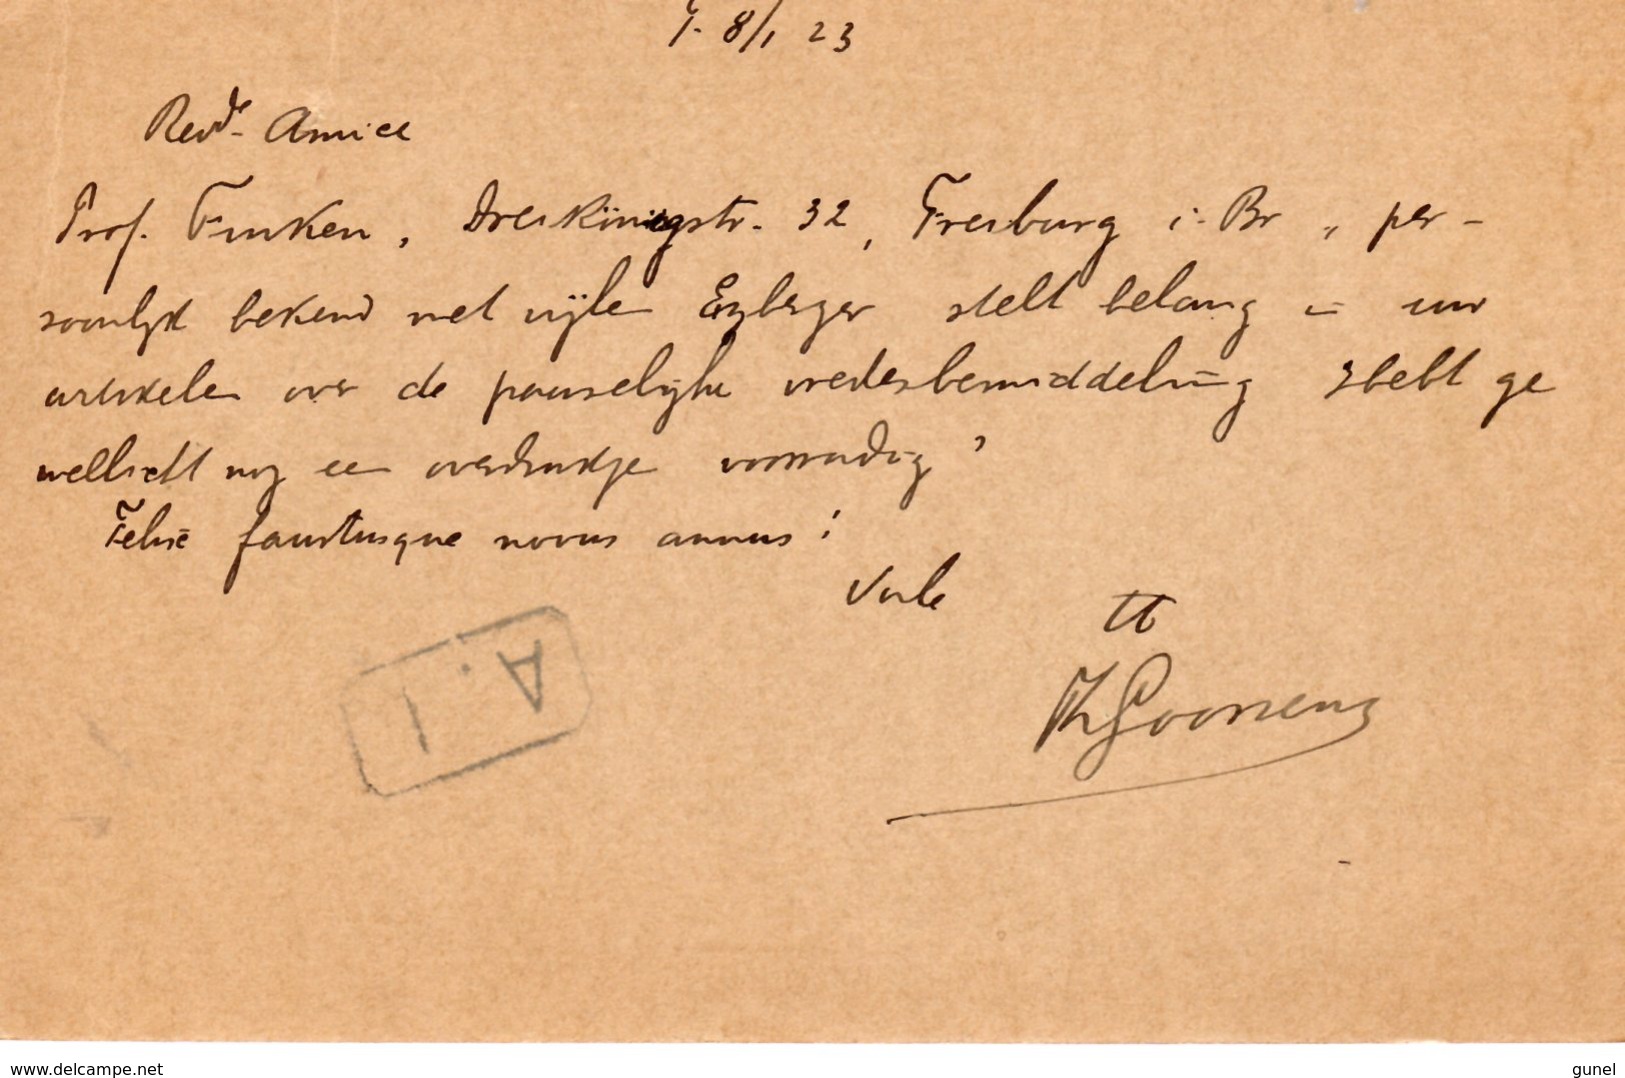 T. 8/1 23
Revde Amice
Prof. Finken, Dreikönigstr. 32, Freiburg i. Br., per-
soonlijk bekend met wijlen Erzberger stelt belang in uw
artikelen over de pauselijke vredesbemiddeling Hebt ge
wellicht nog een overdrukje voorradig?
Felix faustusque novus annus!
Vale
tt
Th Goossens
A. I
www.delcampe.net
gunel